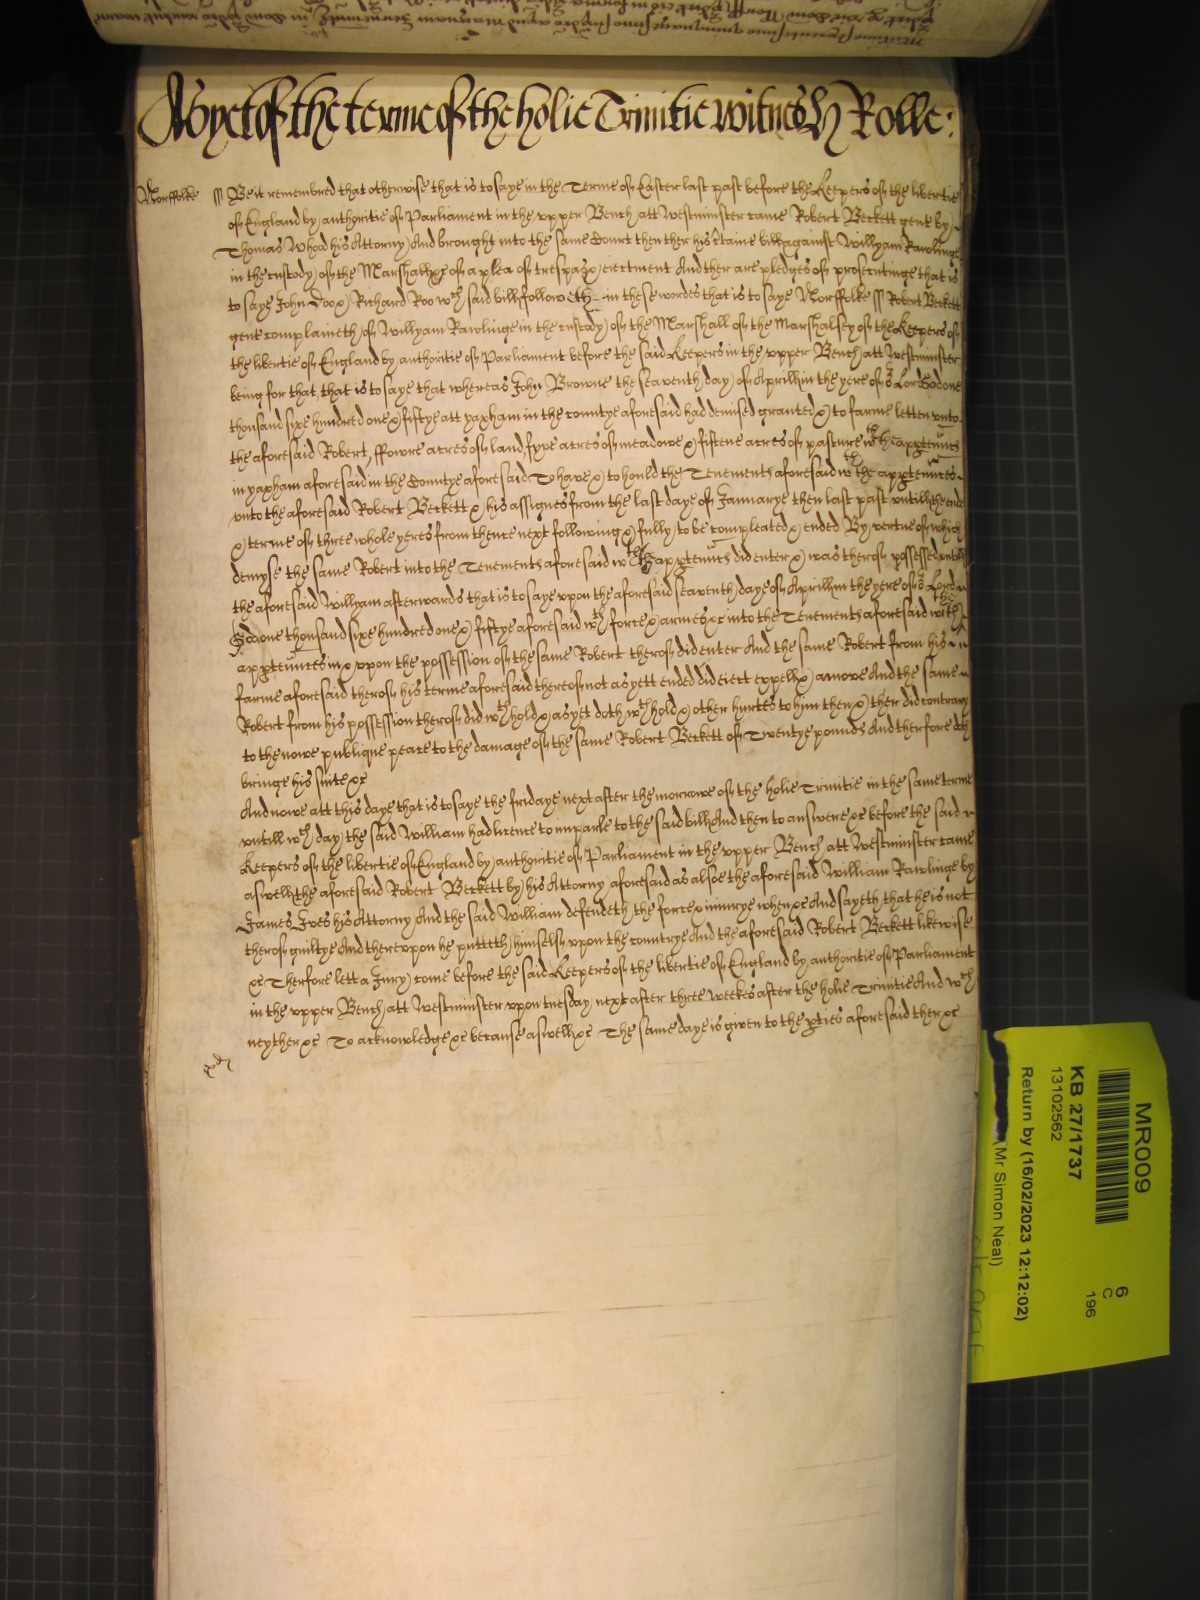 As yet of the terme of the holie Trinitie witnes H Rolle:
Norffolke ss Be it remembred that otherwise that is to saye in the Terme of Easter last past before the Keepers of the libertie
of England by authoritie of Parliament in the vpper Bench att Westminster came Robert Beckett gent by
Thomas Whod his Attorny And brought into the same Court then ther his certaine bill against Willyam Rawlinge
in the custody of the Marshall &c of a plea of trespas & eiectment And ther are pledges of prosecutinge that is
to saye John Doo & Richard Roo wch said bill followeth in these wordes that is to saye Norffolke ss Robert Beckett
gent complaineth of Willyam Rawlinge in the custody of the Marshall of the Marshalsey of the Keepers of
the libertie of England by authoritie of Parliament before the said Keepers in the vpper Bench att Westminster
being for that, that is to saye that whereas John Browne the seaventh day of Aprill in the yere of or Lord God one
thousand sixe hundred one & fiftye att yaxham in the countye aforesaid had demised granted & to farme letten vnto
the aforesaid Robert, ffowre acres of land, fyve acres of meadowe & fiftene acres of pasture wth the apptenncs
in yaxham aforesaid in the Countye aforesaid To have & to hould the Tenements aforesaid wth the apptennces
vnto the aforesaid Robert Beckett & his assignes from the last daye of Januarye then last past vntill the end
& terme of three whole yeres from thence next following & fully to be compleated & ended By vertue of which
demyse the same Robert into the Tenements aforesaid wth the apptenncs did enter & was therof possessed vntill
the aforesaid Willyam afterwards that is to saye vpon the aforesaid seaventh daye of Aprill in the yere of or Lord
God one thousand sixe hundred one & fiftye aforesaid wth force & armes &c into the Tenements aforesaid with the
apptennces in & vpon the possession of the same Robert therof did enter And the same Robert from his
farme aforesaid therof his terme aforesaid thereof not as yett ended did eiect expell & amove And the same
Robert from his possession therof did wthhold & as yet doth wthhold & other hurtes to him then & ther did contrary
to the nowe publique peace to the damage of the same Robert Beckett of Twentye pounds And therfore he
bringe his suite &c
And nowe att this daye that is to saye the fridaye next after the morrowe of the holie Trinitie in the same terme
vntill wch day the said William had licence to imparle to the said bill And then to answere &c before the said
Keepers of the libertie of England by authoritie of Parliament in the vpper Bench att Westminster came
aswell the aforesaid Robert Beckett by his Attorny aforesaid as alsoe the aforesaid William Rawlinge by
James Ives his Attorny And the said William defendeth the force & iniurye when &c And sayeth that he is not
therof guiltye And therevpon he putteth himself vpon the countrye And the aforesaid Robert Beckett likewise
&c Therfore lett a Jury come before the said Keepers of the libertie of England by authoritie of Parliament
in the vpper Bench att Westminster vpon tuesday next after three weekes after the holie Trinitie And wch
neyther &c To acknowledge &c because aswell &c The same daye is given to the pties aforesaid ther &c
MR009
6
C
196
KB 27/1737
13102562
Return by (16/02/2023 12:12:02)
(Mr Simon Neal)